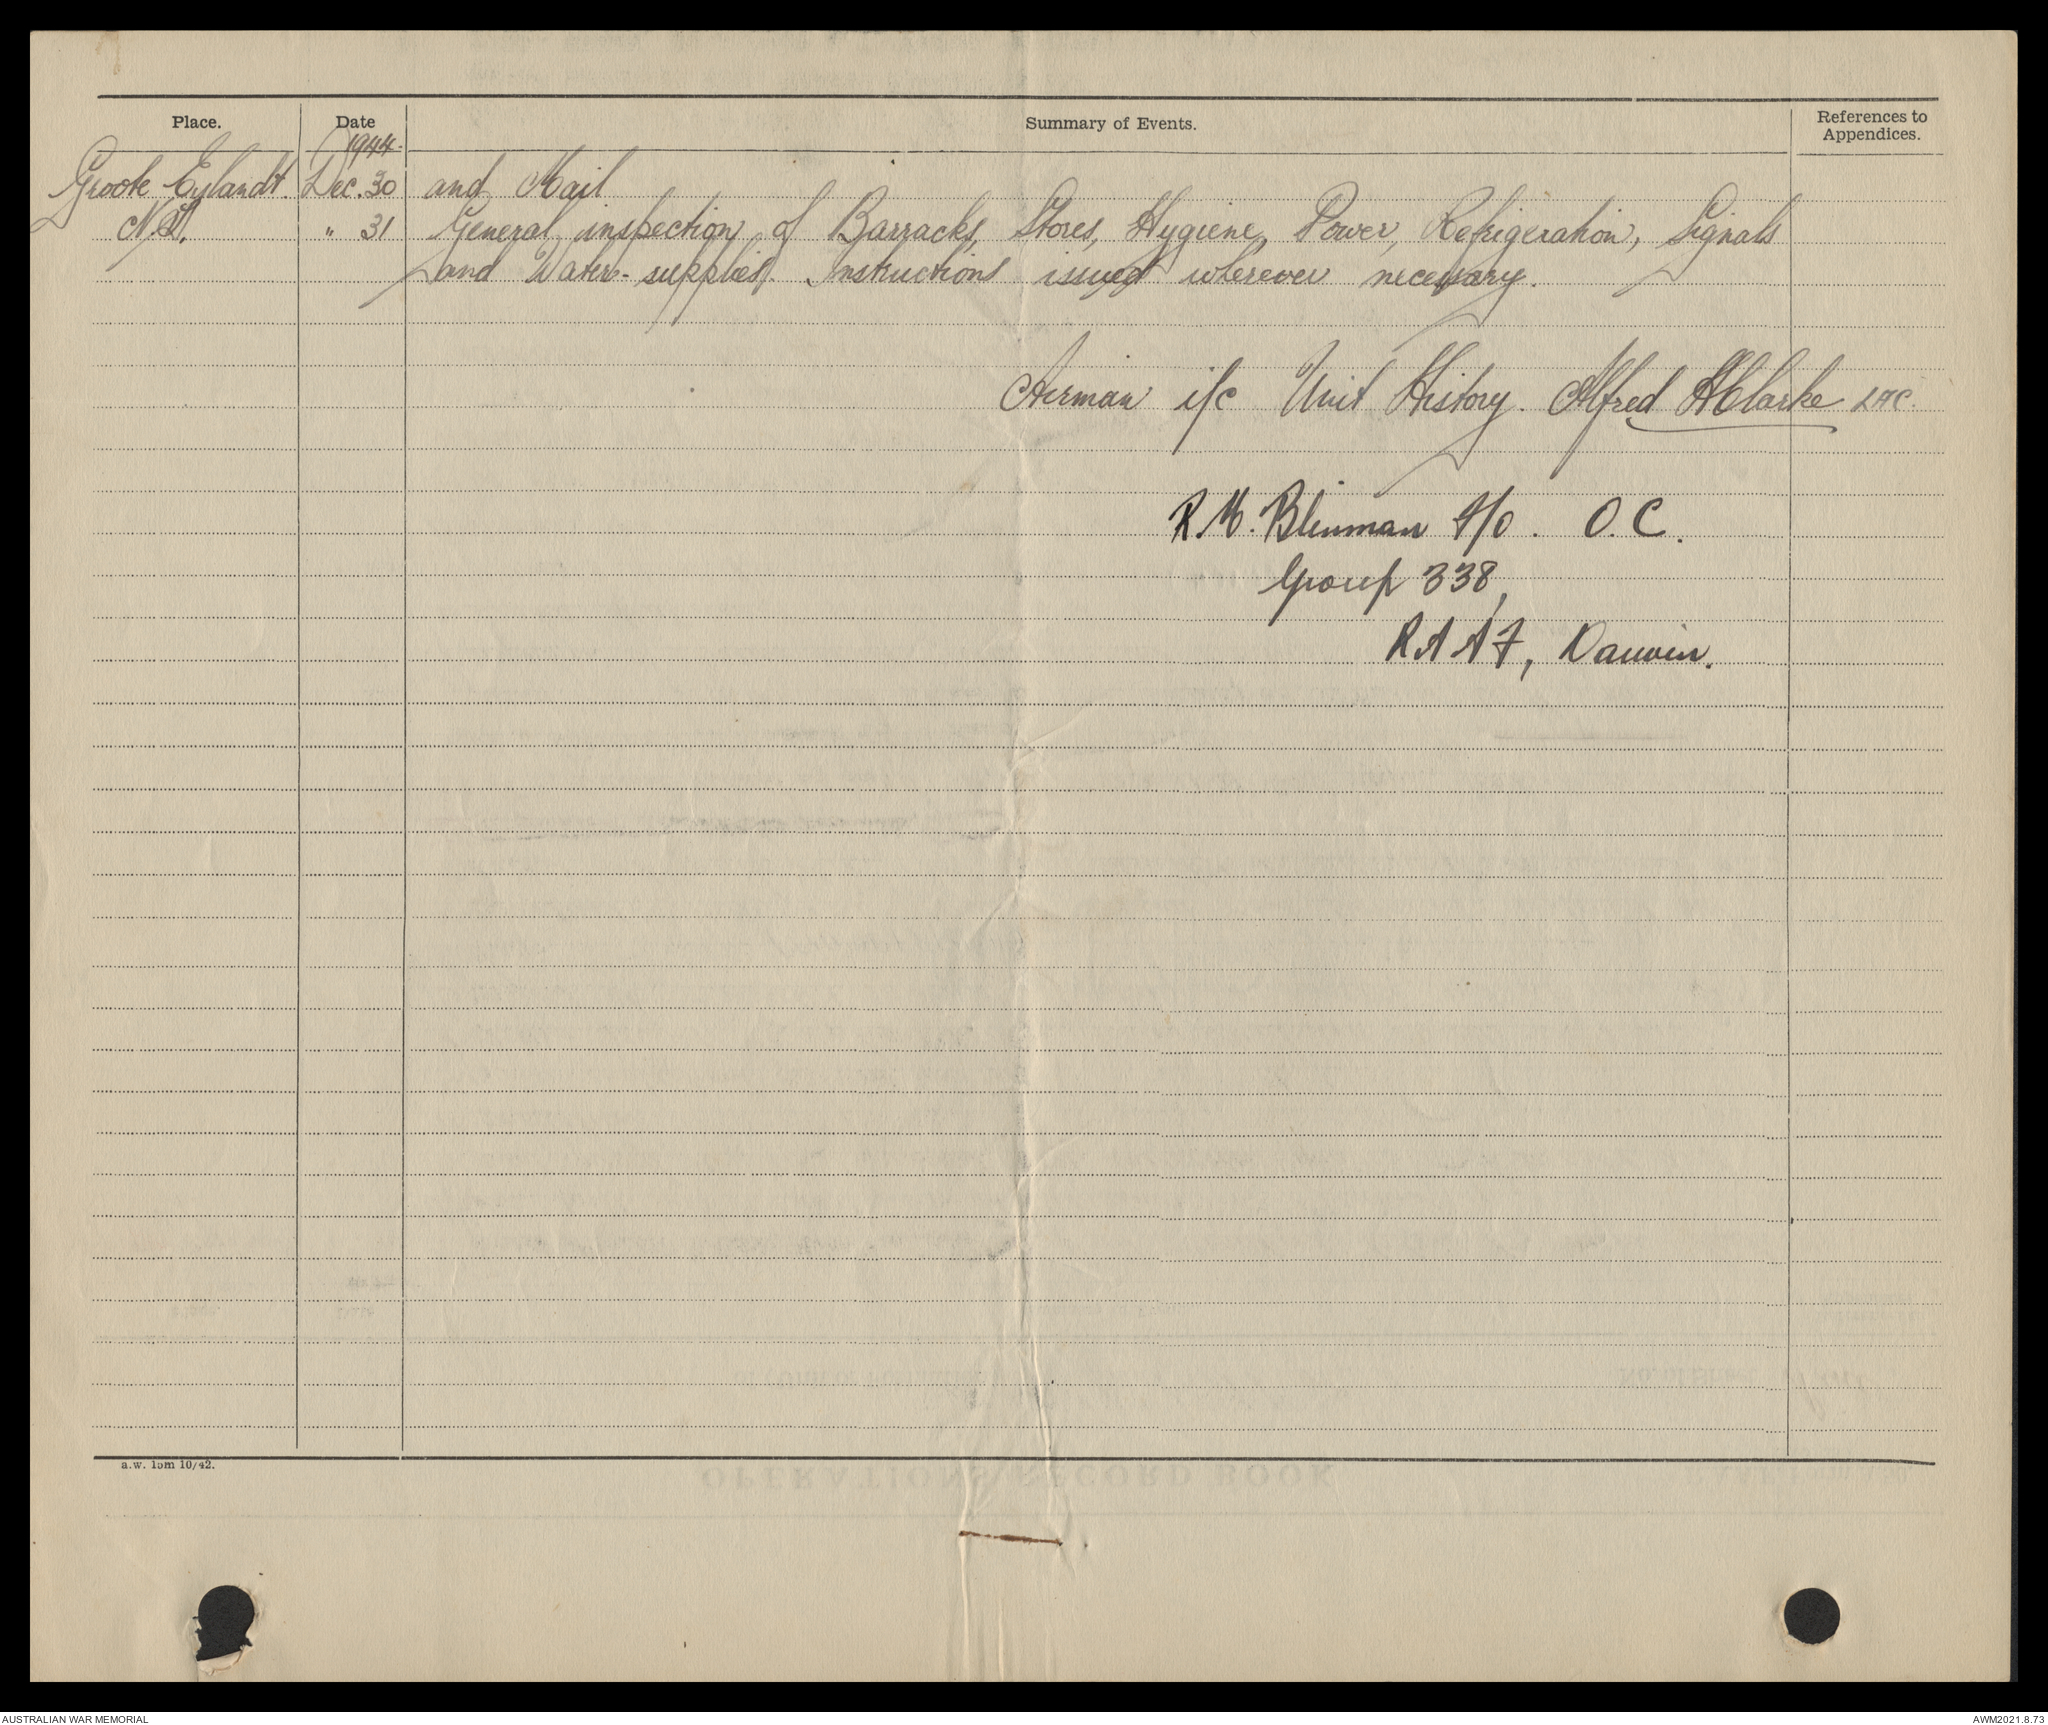 Place.
Date
Summary of Events.
References to
Appendices.
1944.
Groote Eylandt. Dec. 30 and Mail
N.T. " 31 General inspection of Barracks, Stores, Hygiene, Power, Refrigeration, Signals
and Water-supplies. Instructions issued wherever necessary.
Airman i/c Unit History. Alfred H Clarke LAC.
R.M. Blinman F/O. O.C.
Group 338,
RAAF, Darwin.
a.w. 15m 10/42.
OPERATIONS RECORD BOOK
AUSTRALIAN WAR MEMORIAL
AWM2021.8.73